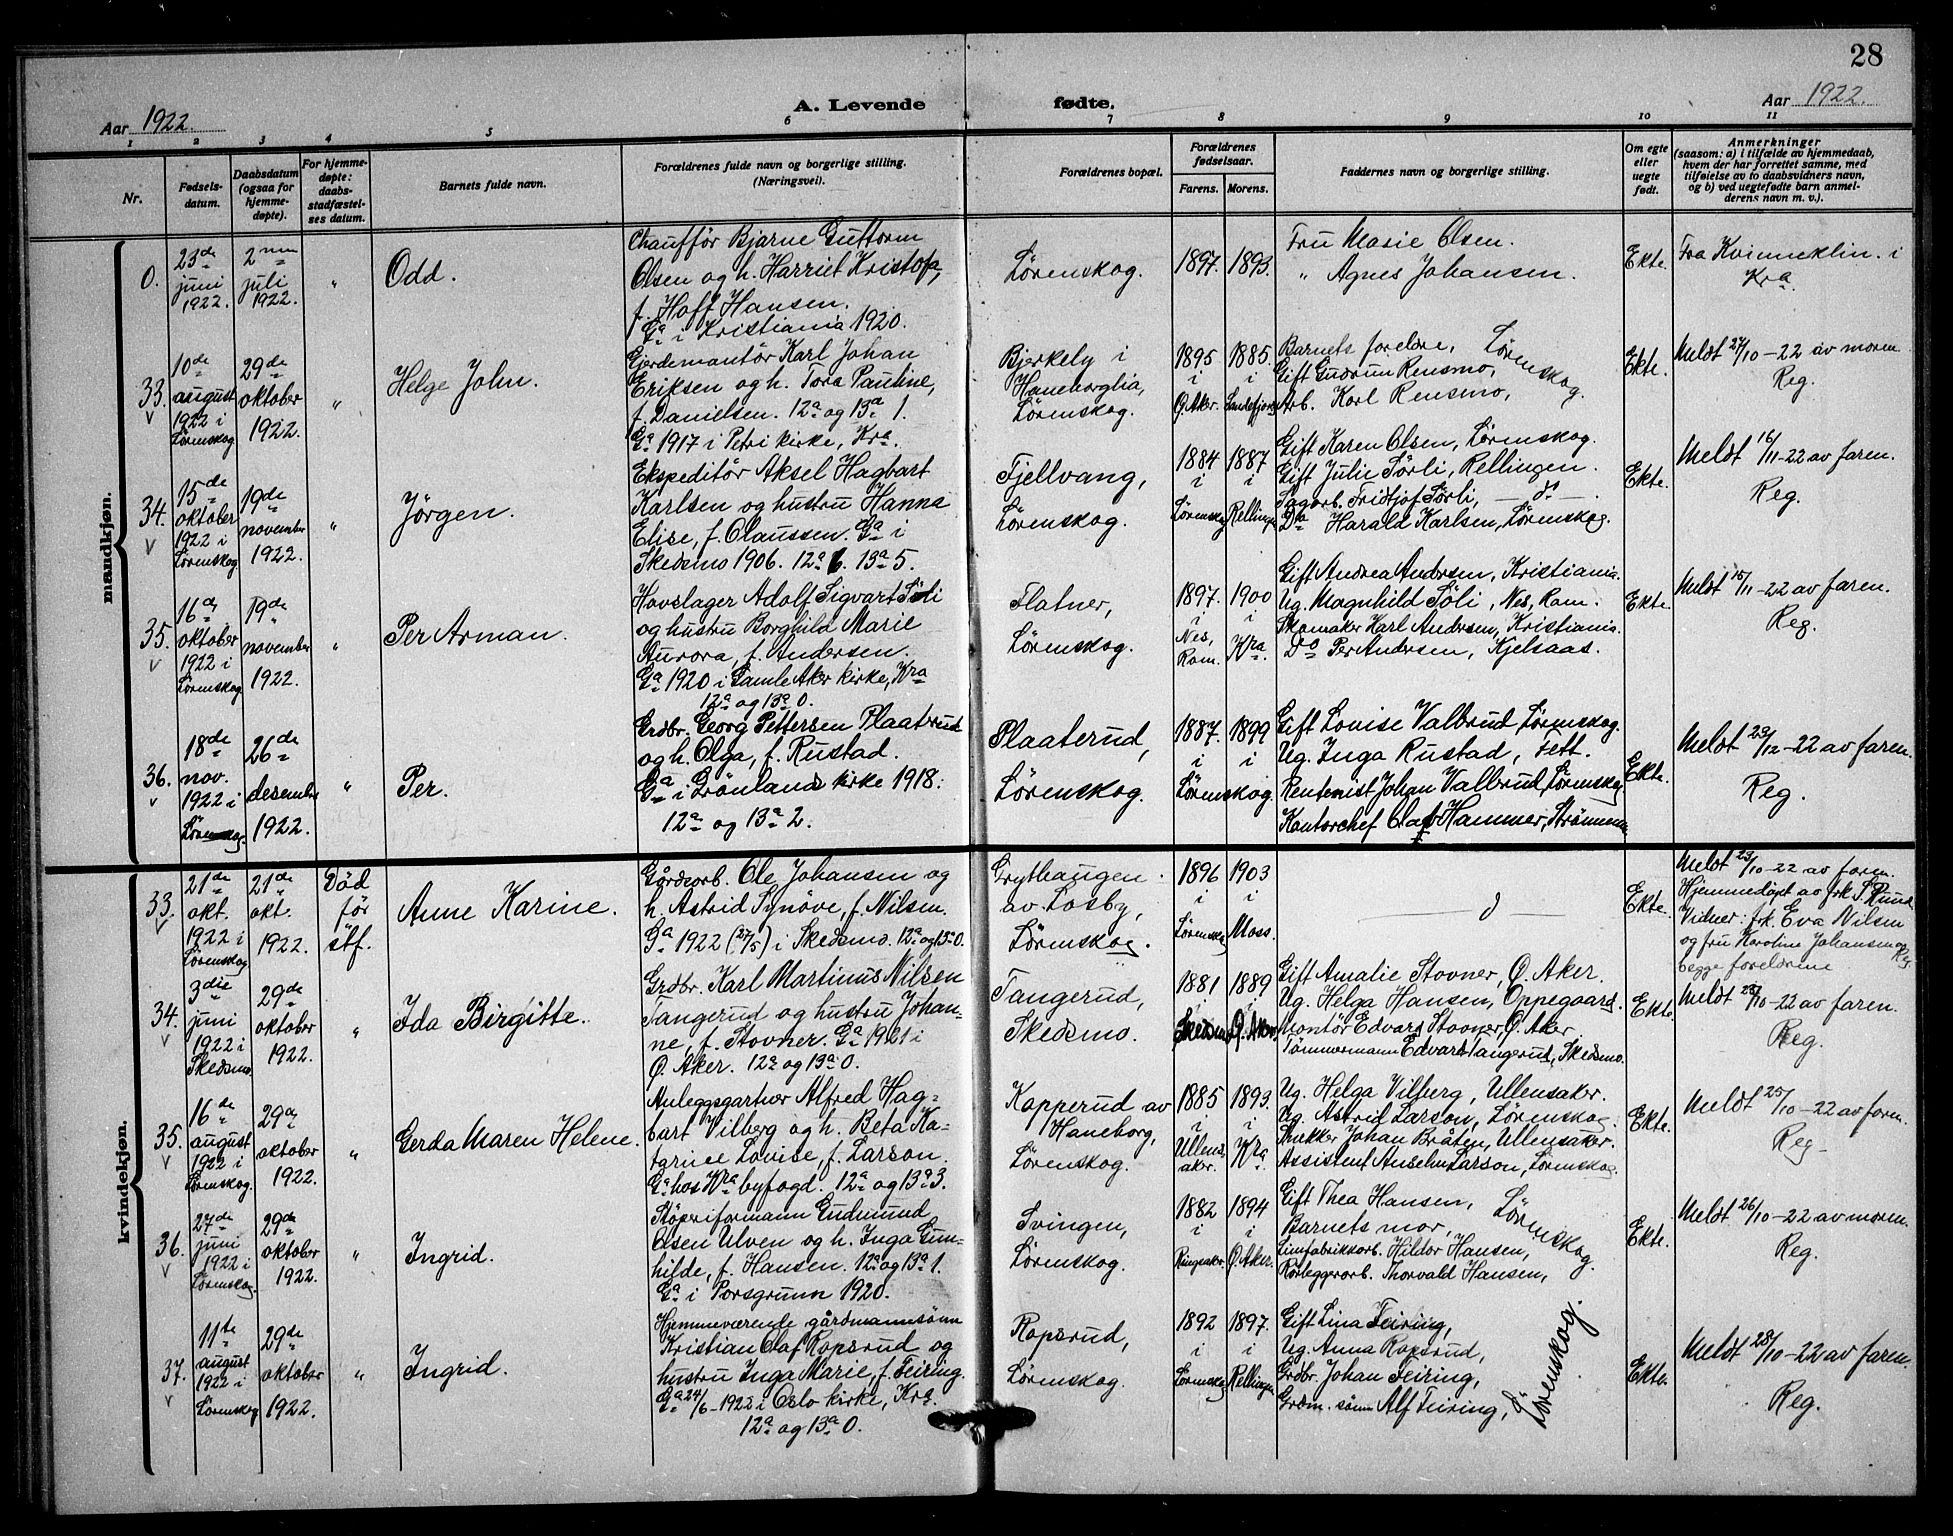 28
Aar 1922.
A. Levende fødte.
Aar 1922.
1 2 3 4 5 6 7 8 9 10 11
Nr.
Fødsels-
datum.
Daabsdatum
(ogsaa for
hjemme-
døpte).
For hjemme-
døpte:
daabs-
stadfæstel-
ses datum.
Barnets fulde navn.
Forældrenes fulde navn og borgerlige stilling.
(Næringsvei).
Forældrenes bopæl.
Forældrenes
fødselsaar.
Farens. Morens.
Faddernes navn og borgerlige stilling.
Om egte
eller
uegte
født.
Anmerkninger
(saasom: a) i tilfælde av hjemmedaab,
hvem der har forrettet samme, med
tilføielse av to daabsvidners navn,
og b) ved uegtefødte barn anmel-
derens navn m. v.).
mandkjøn.
0.
23de
juni
1922.
2nen
juli
1922.
"
Odd.
Chaufför Bjarne Guttorm
Olsen og h. Harriet Kristofa,
f. Hoff Hansen.
Ga i Kristiania 1920.
Lörenskog.
1897. 1893.
Fru Marie Olsen.
" Agnes Johansen.
Ekte.
Fra Kvinneklin. i
Kra.
33.
10de
august
1922 i
Lörenskog
29de
oktober
1922.
"
Helge John.
Gjerdemontör Karl Johan
Eriksen og h. Tora Pauline,
f. Danielsen. 12a og 13a 1.
Ga 1917 i Petri kirke, Kra.
Bjerkely i
Haneborglia,
Lörenskog.
1895 1885.
i i
Ö. Aker. Sandefjord
Barnets forelre, Lörenskog.
Gift Gudrun Rensmo,
Arb. Karl Rensmo,
Ekte.
Meldt 27/10-22 av moren
Reg.
34.
15de
oktober
1922 i
Lörenskog
19de
november
1922.
"
Jörgen.
Ekspeditör Aksel Hagbart
Karlsen og hustru Hanna
Elise, f. Olaussen. Ga i
Skedsmo 1906. 12a 6. 13a 5.
Fjellvang,
Lörenskog.
1884 1887
i i
Lörenskog Rellingen
Gift Karen Olsen, Lörenskog.
Gift Julie Sörli, Rellingen.
Sagarb. Fridtjof Sörli, — do —.
Do Harald Karlsen, Lörenskog.
Ekte.
Meldt 16/11-22 av faren.
Reg.
35.
16de
oktober
1922 i
Lörenskog
19de
november
1922.
"
Per Arman.
Hovslager Adolf Sigvart Söli
og hustru Borghild Marie
Aurora, f. Andersen.
Ga 1920 i Gamle Aker kirke, Kra
12a og 13a 0.
Flatner,
Lörenskog.
1897. 1900
i i
Nes,
Rom. Kra.
Gift Andrea Andersen, Kristiania.
Ug. Magnhild Söli, Nes, Rom.
Skomaker Karl Andersen, Kristiania.
Do Per Andersen, Kjelsaas.
Ekte.
Meldt 15/11-22 av faren.
Reg.
36.
18de
nov.
1922 i
Lörenskog.
26de
desember
1922.
"
Per.
Grdbr. Georg Pettersen Plaaterud
og h. Olga, f. Rustad.
Ga i Grönlands kirke 1918.
12a og 13a 2.
Plaaterud,
Lörenskog.
1887. 1899
i i
Lörenskog.
Gift Lovise Valbrud Lörenskog.
Ug. Inga Rustad, Fett.
Rentenist Johan Valbrud, Lörenskog
Kontorchef Olaf Hammer, Strömmen
Ekte.
Meldt 23/12-22 av faren.
Reg.
kvindekjøn.
33.
21de
okt.
1922 i
Lörenskog
21de
okt.
1922.
Död
för
stf.
Anne Karine.
Gårdsarb. Ole Johansen og
h. Astrid Synöve, f. Nilsen.
Ga 1922 (27/5) i Skedsmo. 12a og 13a 0.
Grythaugen
av Losby,
Lörenskog.
1896 1903
i i
Lörenskog Moss.
Ekte.
Meldt 23/10-22 av faren.
Hjemmedöpt av frk. S. Rund
Vidner: frk. Eva Nilsen
og fru Karoline Johansen og
begge foreldrene Reg.
34.
3die
juni
1922 i
Skedsmo.
29de
oktober
1922.
"
Ida Birgitte.
Grdbr. Karl Martinus Nilsen
Tangerud og hustru Johan-
ne, f. Stovner. Ga 1921 i
Ö. Aker. 12a og 13a 0.
Tangerud,
Skedsmo.
1881 1889
i i
Skedsmo Ö. Aker.
Gift Amalie Stovner, Ö. Aker.
Ug. Helga Hansen, Oppegaard.
Montör Edvard Stovner, Ö. Aker.
Tömmermann Edvard Tangerud, Skedsmo.
Ekte.
Meldt 23/10-22 av faren.
Reg.
35.
16de
august
1922 i
Lörenskog.
29de
oktober
1922.
"
Gerda Maren Helene.
Anleggsgartner Alfred Hag-
bart Vilberg og h. Beta Ka-
trine Lovise, f. Larson.
Ga hos Kra byfogd. 12a og 13a 3.
Kopperud av
Haneborg,
Lörenskog.
1885 1893.
i i
Ullens-
aker. Kra.
Ug. Helga Vilberg, Ullensaker.
Ug. Astrid Larson, Lörenskog.
Snekker Johan Bråten, Ullensaker.
Assistent Anselm Larson, Lörenskog.
Ekte.
Meldt 25/10-22 av faren.
Reg.
36.
27de
juni
1922 i
Lörenskog.
29de
oktober
1922.
"
Ingrid.
Stöperiformann Gudmund
Olsen Ulven og h. Inga Gun-
hilde, f. Hansen. 12a og 13a 1.
Ga i Porsgrunn 1920.
Svingen,
Lörenskog.
1882 1894
i i
Ringsaker. Ö. Aker.
Gift Thea Hansen, Lörenskog.
Barnets mor,
Limfabrikkarb. Hildor Hansen,
Rörleggerarb. Thorvald Hansen,
Ekte.
Meldt 26/10-22 av moren.
Reg.
37.
11te
august
1922 i
Lörenskog
29de
oktober
1922.
"
Ingrid.
Hjemmeværende gårdmannssönn
Kristian Olaf Ropsrud og
hustru Inga Marie, f. Feiring.
Ga 24/6-1922 i Oslo kirke, Kra.
12a og 13a 0.
Ropsrud,
Lörenskog.
1892 1897.
i i
Lörenskog Rellingen
Gift Lina Feiring, Lörenskog.
Ug. Anna Ropsrud,
Grdbr. Johan Feiring,
Grdm. sönn Alf Feiring,
Ekte.
Meldt 28/10-22 av faren.
Reg.